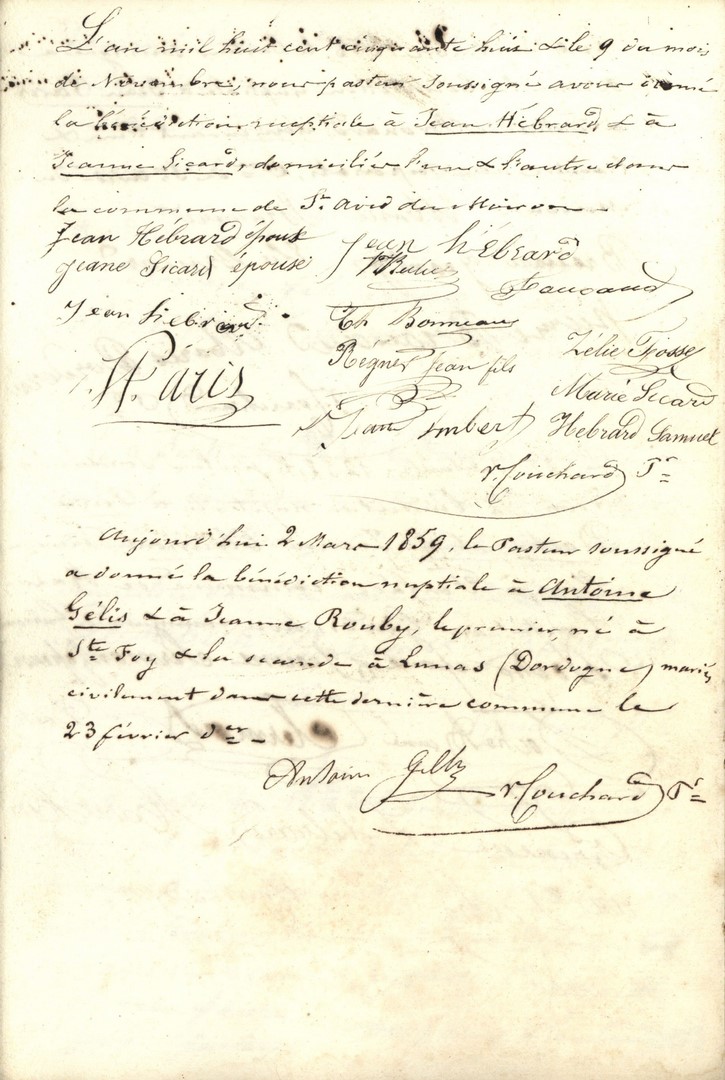 L'an mil huit cent cinquante huit & le 9 du mois
de Novembre, nous pasteur soussigné avons donné
la bénédiction nuptiale à Jean Hébrard & à
Jeanne Sicard, domiciliés l'un & l'autre dans
la commune de St. Avid du Moiron
Jean Hébrard épous
Jean hébrard
jeane Sicard épouse
Faucaud
Jean hebrard
Th Bonneau
Zélie Fosse
Régner Jean fils
Marie Sicard
Paris
Jean Imbert
Hebrard Samuel
v. Couchard Pr
Aujourd'hui 2 Mars 1859, le Pasteur soussigné
a donné la bénédiction nuptiale à Antoine
Gélis & à Jeanne Rouby, le premier, né à
Ste Foy & la seconde à Lunas (Dordogne) mariés
civilement dans cette dernière commune le
23 février der
Antoine Gellis
v. Couchard Pr